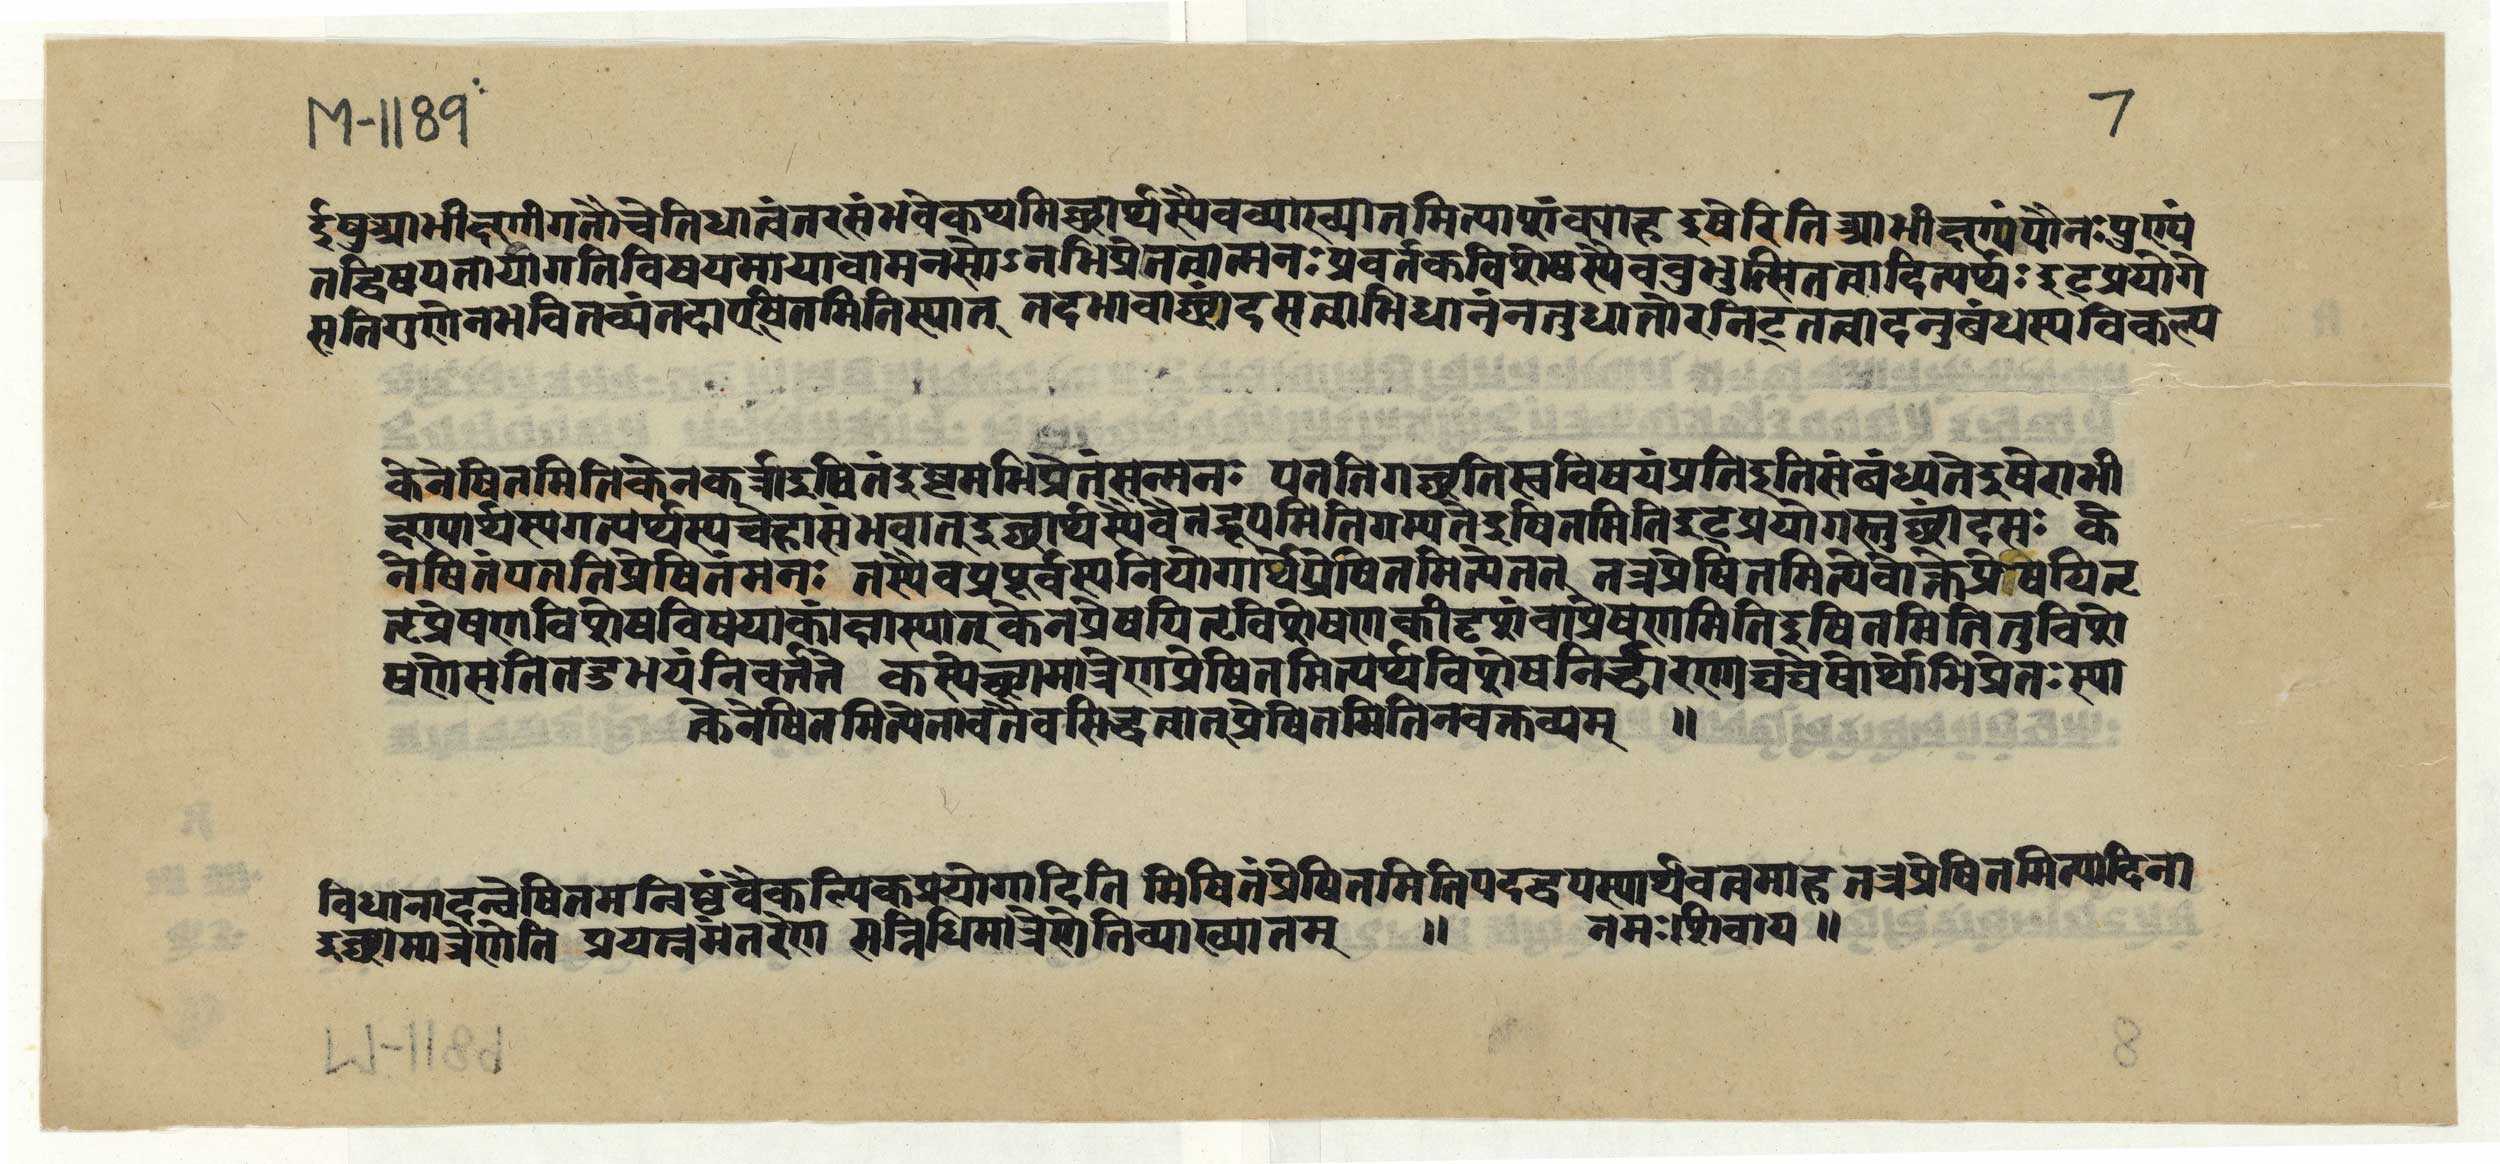 M-1189
7
र्इषुआभीक्ष्णीगतौचेतिधात्वंतरसंभवेकथमिच्छार्थस्यैवव्याख्यानमित्याशंक्याह इषेरिति आभीक्ष्ण्यंपौनःपुण्यं
तद्विषयतायांगतिविषयमायावामनसोऽनभिप्रेतत्वात्मनःप्रवर्तकविशेषस्यैवबुभुत्सितत्वादित्यर्थः इट्प्रयोगे
सतिगुणेनभवितव्यंतदाएषितमितिस्यात् तदभावाच्छांदसत्वाभिधानंनतुधातोरनिट्तत्वादनुबंधस्यविकल्प
केनेषितमितिकेनकर्त्राइषितंइष्टमभिप्रेतंसन्मनः पततिगच्छतिस्वविषयंप्रतिइतिसंबंध्यतेइषेराभी
क्ष्ण्यार्थस्यगत्यर्थस्यचेहासंभवात्इच्छार्थस्यैवैतद्रूपमितिगम्यतेइषितमितिइट्प्रयोगस्तुच्छांदसः के
नेषितंपततिप्रेषितंमनः तस्यैवप्रपूर्वस्यनियोगार्थेप्रेषितमित्येतत् तत्रप्रेषितमित्येवोक्तेप्रेषयितृ
तृप्रेषणविशेषविषयाकांक्षास्यात्केनप्रेषयितृविशेषेणकीदृशंवाप्रेषणमितिइषितमितितुविशे
षणेसतितदुभयंनिवर्त्तते कस्येच्छामात्रेणप्रेषितमित्यर्थविशेषनिर्द्धारणाद्यद्येषोर्थोभिप्रेतःस्या
त्केनेषितमित्येतावतैवसिद्धत्वात्प्रेषितमितिनवक्तव्यम् ॥
विधानादन्वेषितमन्विष्टंवैकल्पिकप्रयोगादिति मिषितंप्रेषितमितिपदद्वयस्यार्थवत्वमाह तत्रप्रेषितमित्यादिना
इच्छामात्रेणेति प्रयत्नमंतरेण सन्निधिमात्रेणेतिव्याख्यातम् ॥ नमःशिवाय ॥